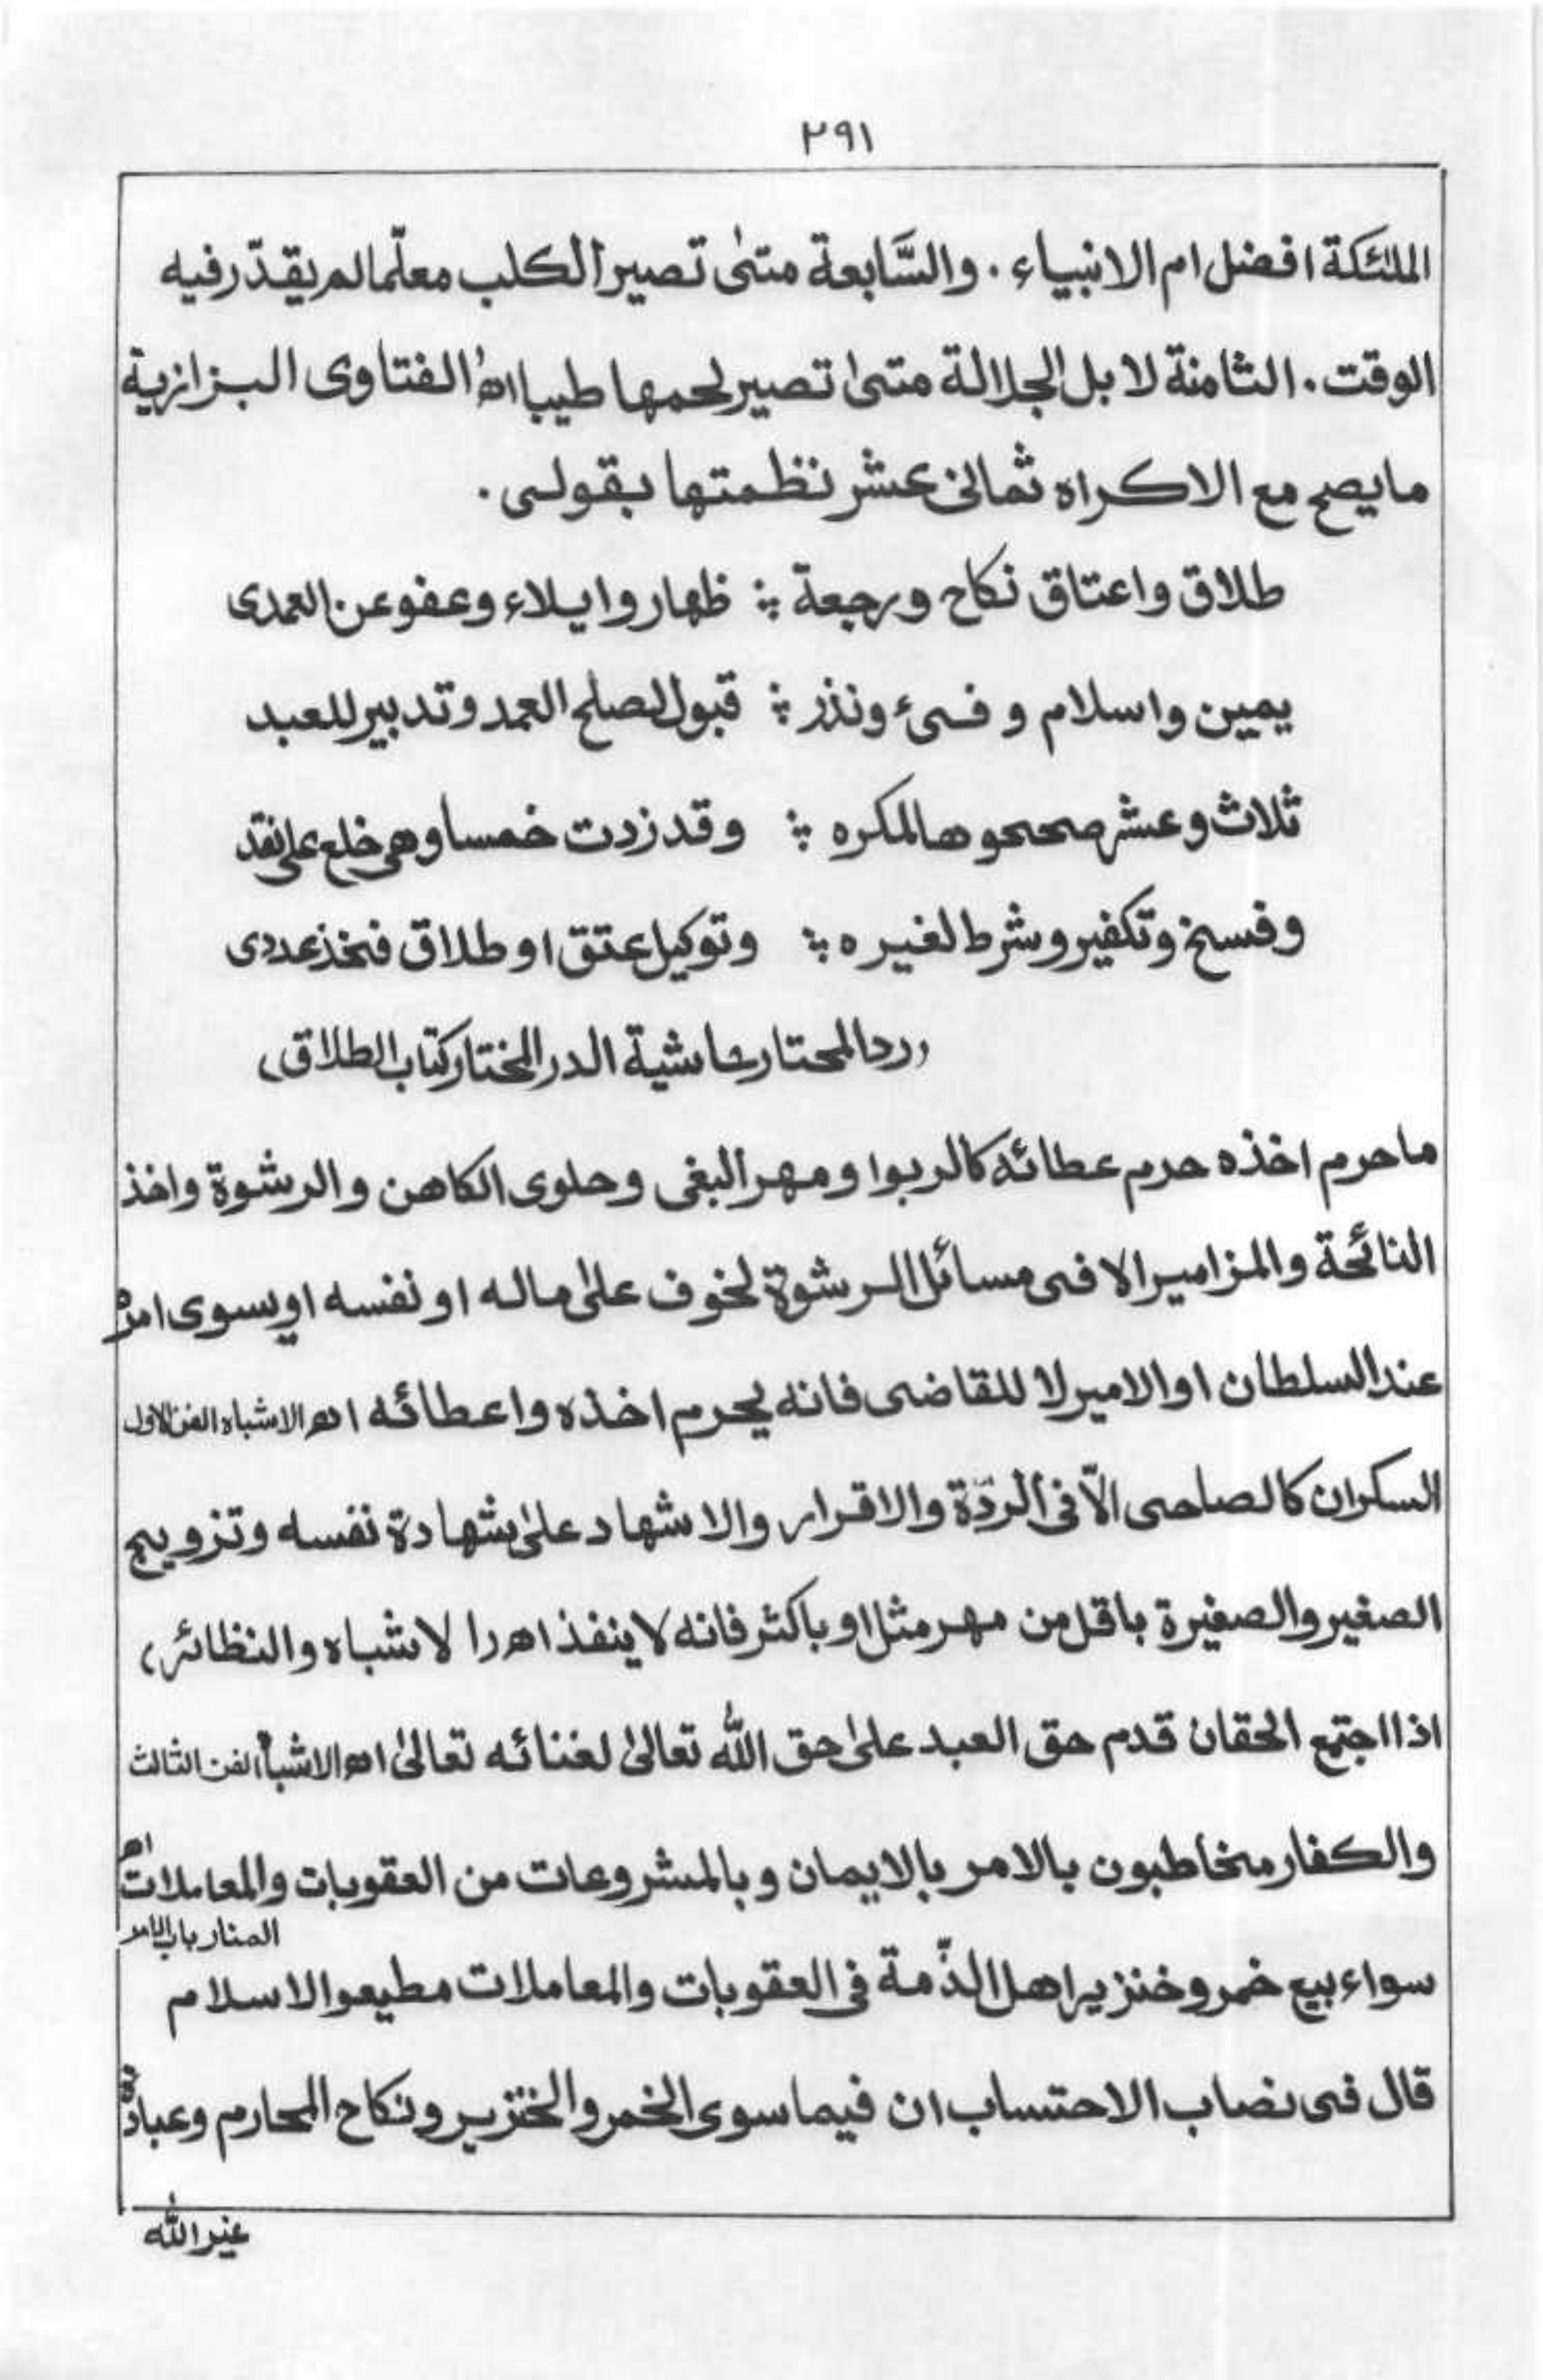 ٢٩١
الملئكة افضل ام الانبياء . والسَّابعة متىٰ تصير الكلب معلّما لم يقدّر فيه
الوقت . الثامنة لا بل الجلالة متىٰ تصير لحمها طيبا اھ الفتاوى البزازية
ما يصح مع الاكراه ثمانى عشر نظمتها بقولى .
طلاق واعتاق نكاح ورجعة ؛ ظهار وايلاء وعفو عن العمدى
يمين واسلام وفىء ونذر ؛ قبول لصلح العمد وتدبير للعبد
ثلاث وعشر صححوها لمكره ؛ وقد زدت خمسا وهى خلع على نقد
وفسخ وتكفير وشرط لغيره ؛ وتوكيل عتق او طلاق فخذ عددى
(رد المحتار حاشية الدر المختار كتاب الطلاق)
ما حرم اخذه حرم عطائه كالربوا ومهر البغى وحلوى الكاهن والرشوة واخذ
النائحة والمزامير الا فى مسائل الرشوة لخوف علىٰ ماله او نفسه او يسوى امره
عند السلطان او الامير لا للقاضى فانه يحرم اخذه واعطائه اھ الاشباه الفن الاول
السكران كالصاحى الّا فى الردّة والاقرار والاشهاد علىٰ شهادة نفسه وتزويج
الصغير والصغيرة باقل من مهر مثل او باكثر فانه لا ينفذ اھ (الاشباه والنظائر)
اذا اجتمع الحقان قدم حق العبد علىٰ حق الله تعالىٰ لغنائه تعالىٰ اھ الاشباه الفن الثالث
والكفار مخاطبون بالامر بالايمان وبالمشروعات من العقوبات والمعاملات اھ
المنار باب الامر
سواء بيع خمر وخنزير اهل الذّمة فى العقوبات والمعاملات مطيعوا الاسلام
قال فى نصاب الاحتساب ان فيما سوى الخمر والخنزير ونكاح المحارم وعبادة
غير الله